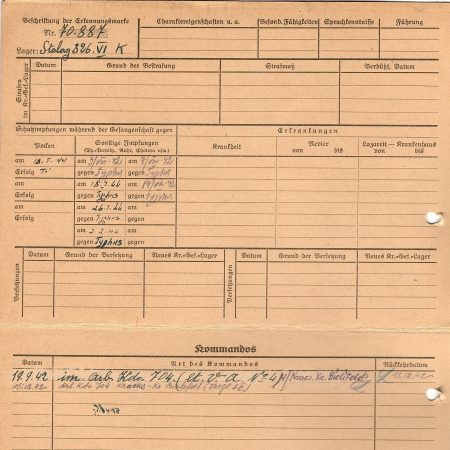 Beschriftung der Erkennungsmarke
Nr. 70.887
Lager: Stalag 326. VI K
Charaktereigenschaften u. a.
Besond. Fähigkeiten
Sprachkenntnisse
Führung
Strafen im Kr.-Gef.-Lager
Datum
Grund der Bestrafung
Strafmaß
Verbüßt, Datum
Schutzimpfungen während der Gefangenschaft gegen
Erkrankungen
Pocken
Sonstige Impfungen
(Ty.-Paraty., Ruhr, Cholera usw.)
Krankheit
Revier
von bis
Lazarett — Krankenhaus
von bis
am 18.1.44 am am
Erfolg gegen Typhus gegen Typhus
am am 18.1.44 am
Erfolg gegen Typhus gegen Typhus
am am 26.1.44 am
Erfolg gegen Typhus gegen
am 2.2.44 am
gegen Typhus gegen
Versetzungen
Datum
Grund der Versetzung
Neues Kr.-Gef.-Lager
Versetzungen
Datum
Grund der Versetzung
Neues Kr.-Gef.-Lager
Kommandos
Datum
Art des Kommandos
Rückkehrdatum
19.9.42 im Arb. Kdo 704. Bielefeld 15.12.42
15.12.42 Arb. Kdo 704